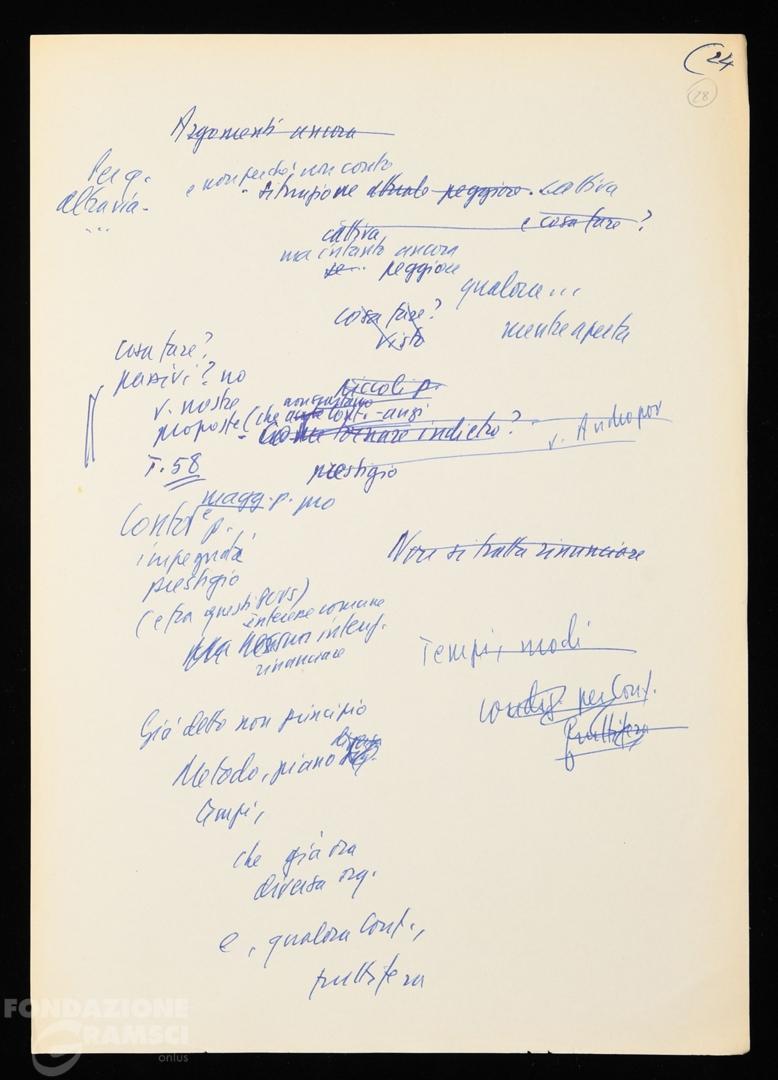 (24
28
Argomenti ancora
Per q.
altra via -
...
e non perché non conto
situazione attuale peggiore. cattiva
cattiva e cosa fare?
ma intanto ancora
peggiore
qualora...
cosa fare?
visto
mentre aperta
cosa fare?
passivi? no
v. nostre
proposte (che Conf. - anzi
piccoli p.
Come tornare indietro?
v. Andropov
T. 58
prestigio
magg. p. mo
Conf. p.
impegnata
prestigio
(e fra questi PCUS)
interesse comune
ma nessun intenz.
rinunciare
Non si tratta rinunciare
Tempi, modi
condiz. per Conf.
fruttifera
Già detto non principio
Metodo, piano
tempi,
che già ora
diversa org.
e, qualora Conf.,
fruttifera
FONDAZIONE
GRAMSCI
onlus